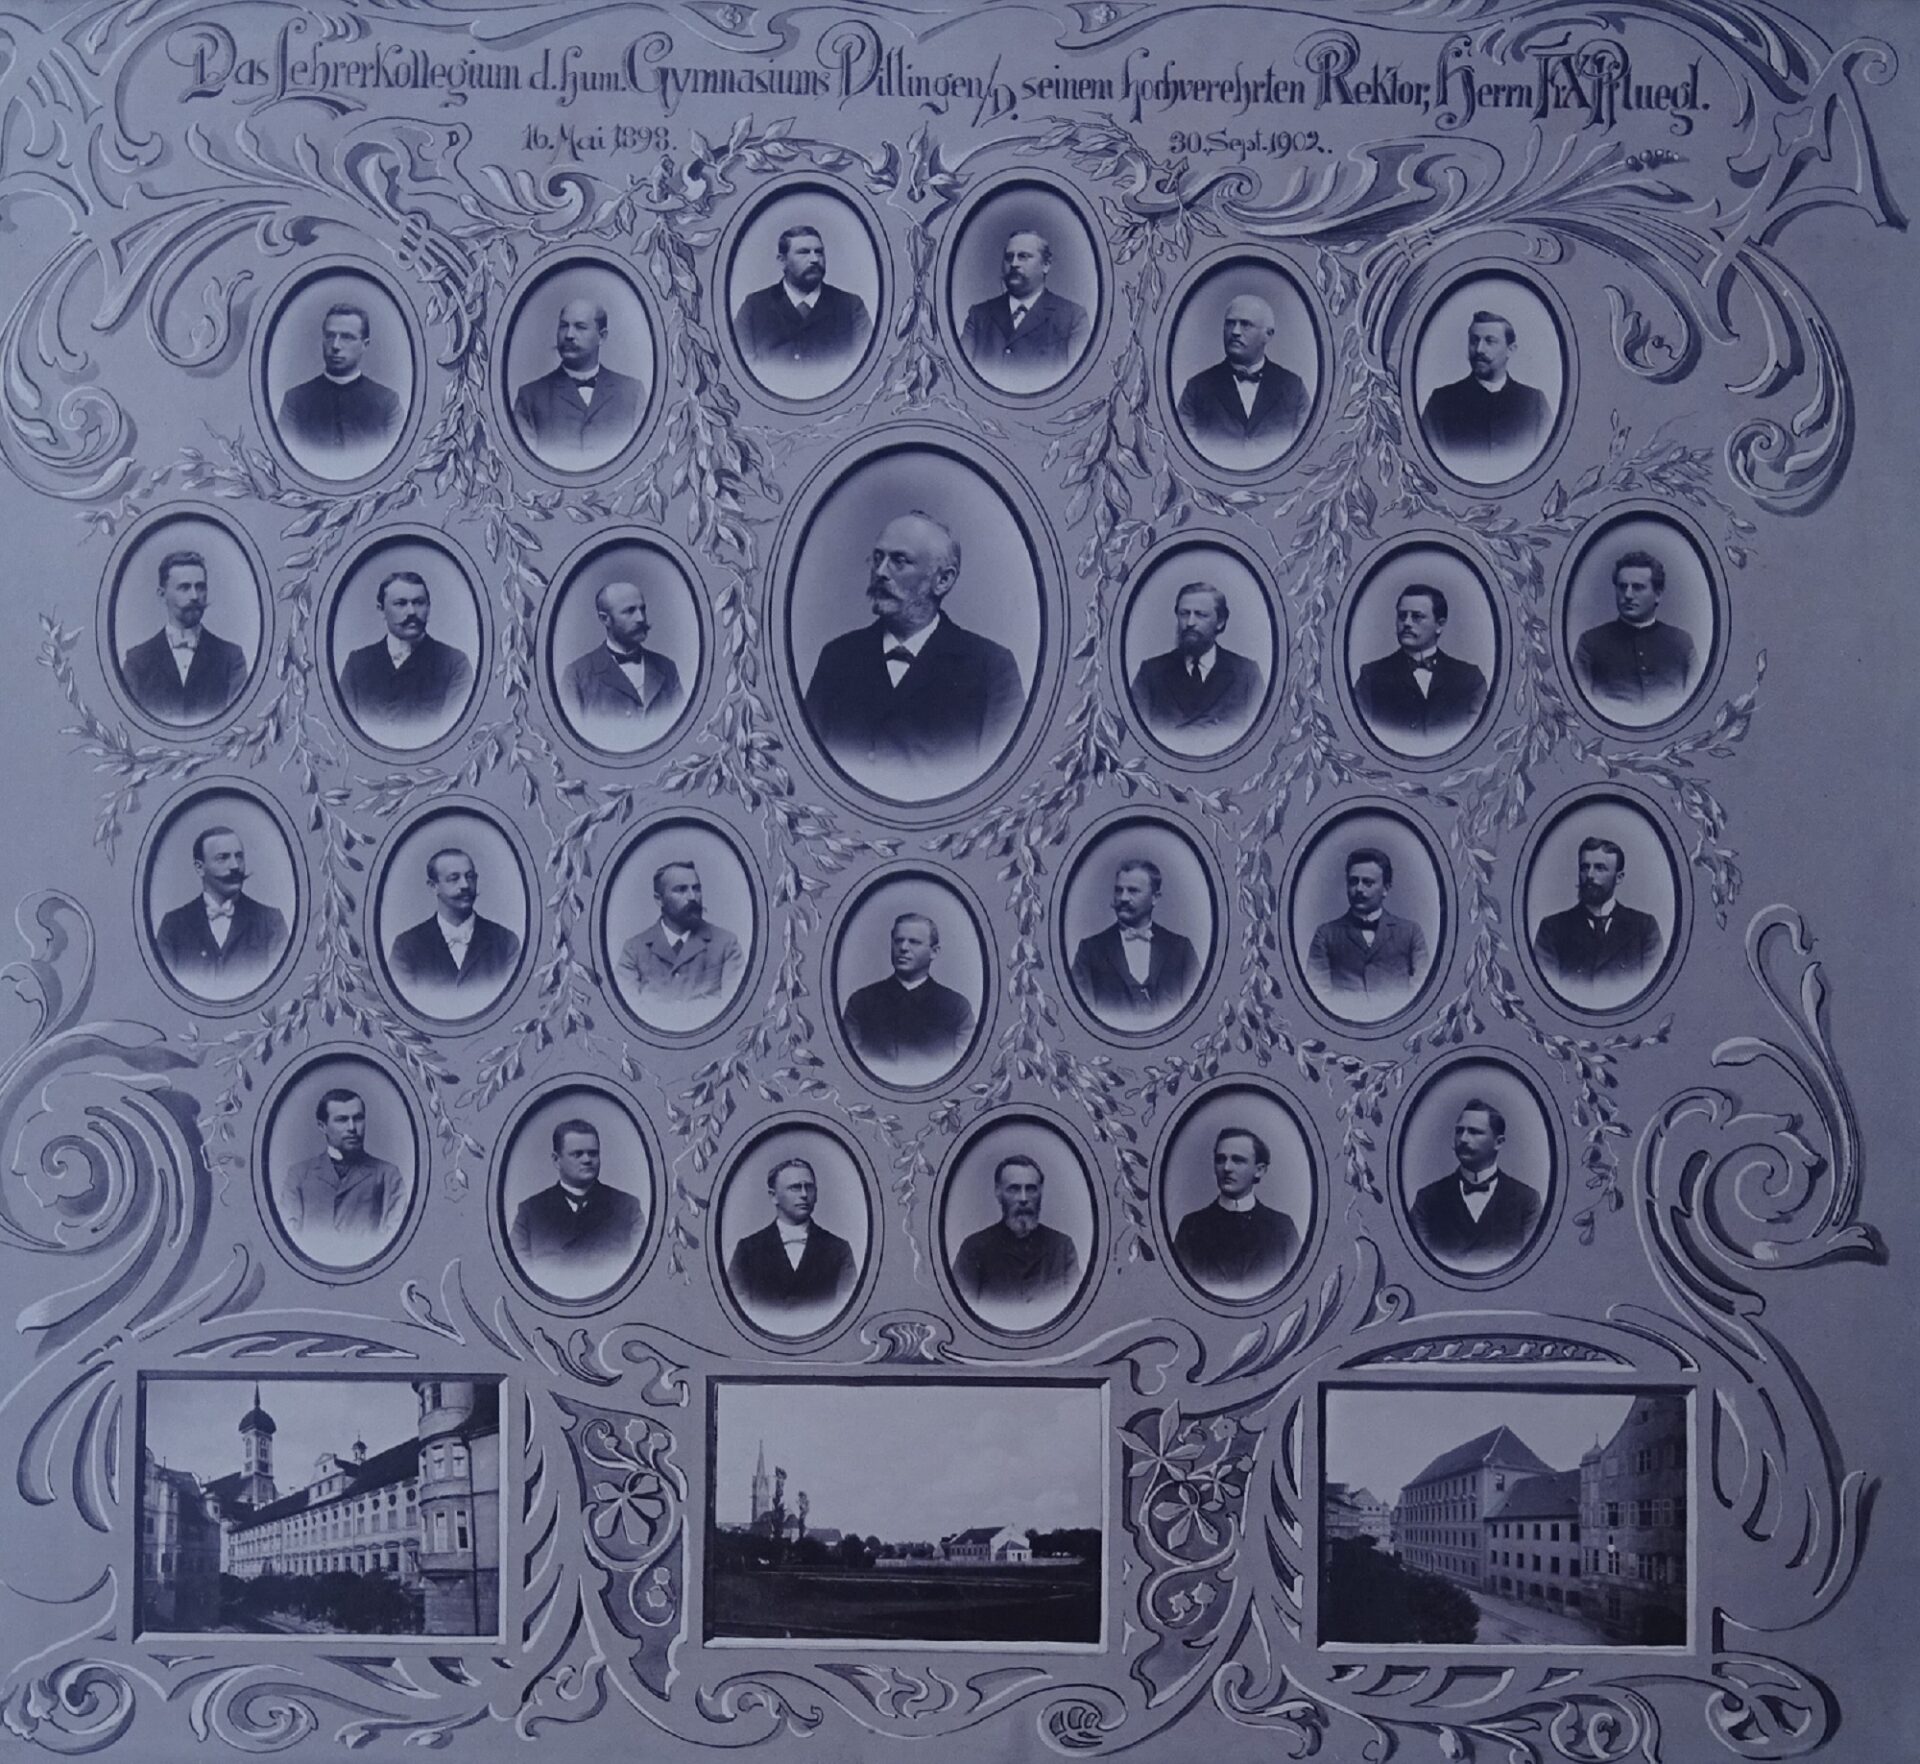 Das Lehrerkollegium d. hum. Gymnasiums Dillingen/D. seinem hochverehrten Rektor, Herrn Fr. X. Pfluegl.
16. Mai 1898. 30. Sept. 1902.